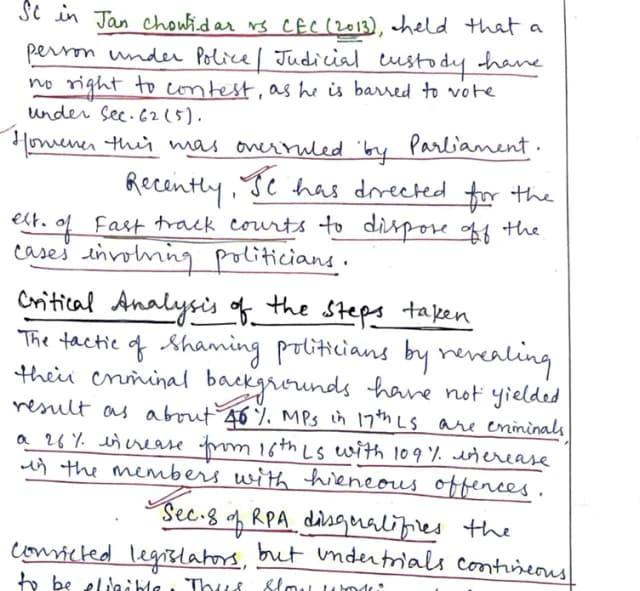 SC in Jan chowkidar vs CEC (2013), held that a
person under Police/ Judicial custody have
no right to contest, as he is barred to vote
under Sec. 62(5).
However this was overruled by Parliament.
Recently, SC has directed for the
est. of Fast track courts to dispose off the
cases involving politicians.
Critical Analysis of the steps taken
The tactic of shaming politicians by revealing
their criminal backgrounds have not yielded
result as about 46% MPs in 17th LS are criminals,
a 26% increase from 16th LS with 109% increase
in the members with hieneous offences.
Sec. 8 of RPA disqualifies the
convicted legislators, but undertrials continueous
to be eligible. Thus slow